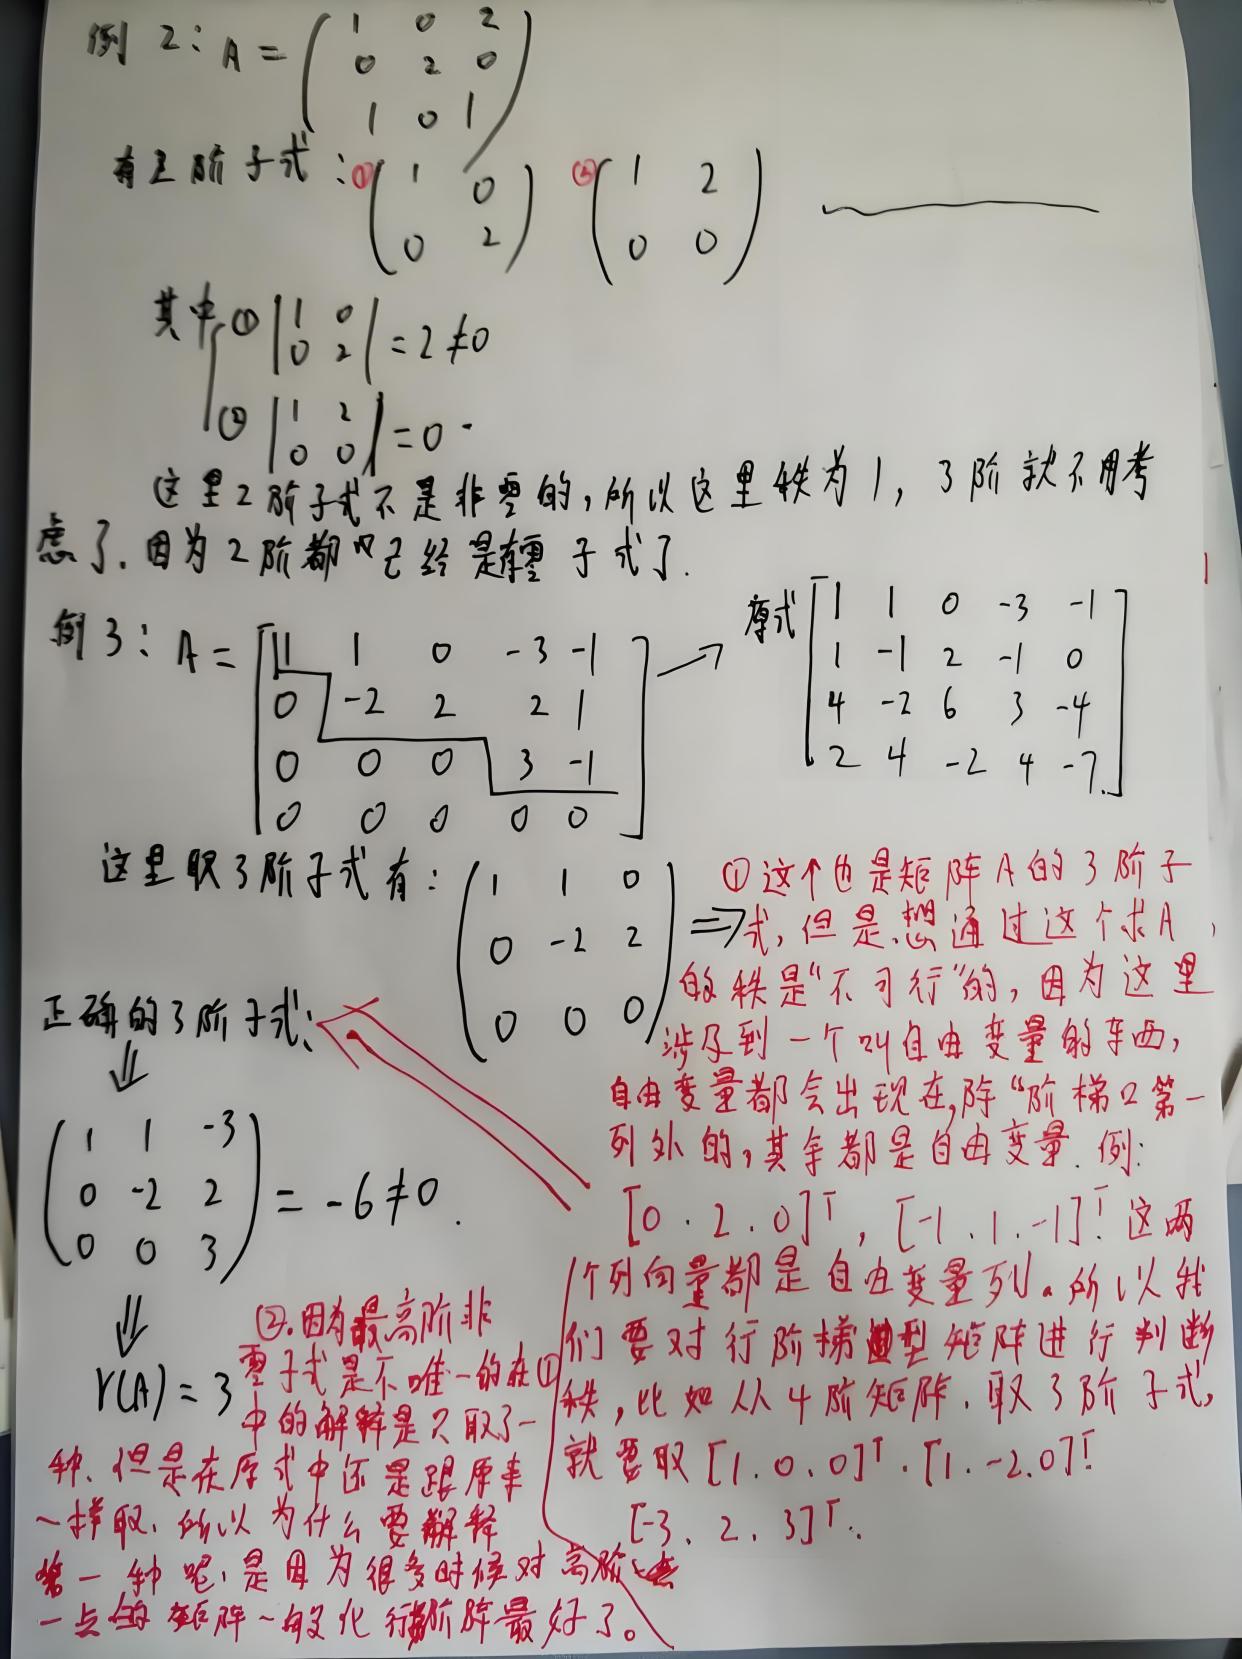 例2: A = ( 1 0 2
0 2 0
1 0 1 )
有2阶子式: ① ( 1 0 ② ( 1 2
0 2 ) 0 0 )
其中 ① | 1 0
0 2 | = 2 ≠ 0
② | 1 2
0 0 | = 0
这里2阶子式不是非零的,所以这里秩为1, 3阶就不用考
虑了.因为2阶都已经是有零子式了.
例3: A = [ 1 1 0 -3 -1
0 -2 2 2 1
0 0 0 3 -1
0 0 0 0 0 ]
→ 原式 [ 1 1 0 -3 -1
1 -1 2 -1 0
4 -2 6 3 -4
2 4 -2 4 -7 ]
这里取3阶子式有: ( 1 1 0
0 -2 2
0 0 0 )
⇒ ①这个也是矩阵A的3阶子
式,但是想通过这个求A
的秩是“不可行”的,因为这里
涉及到一个叫自由变量的东西,
自由变量都会出现在,除“阶梯口第一
列外的,其余都是自由变量.例:
[0.2.0]ᵀ, [-1.1.-1]ᵀ 这两
个列向量都是自由变量列。所以我
们要对行阶梯型矩阵进行判断
秩,比如从4阶矩阵.取3阶子式,
就要取[1.0.0]ᵀ.[1.-2.0]ᵀ
[-3.2.3]ᵀ.
正确的3阶子式:
⇓
( 1 1 -3
0 -2 2
0 0 3 ) = -6 ≠ 0.
⇓
r(A) = 3
②.因为最高阶非
零子式是不唯一的在①
中的解释是只取了一
种.但是在原式中还是跟原来
一样取.所以为什么要解释
第一种呢.是因为很多时候对高阶
一点的矩阵一般化行阶阵最好了。